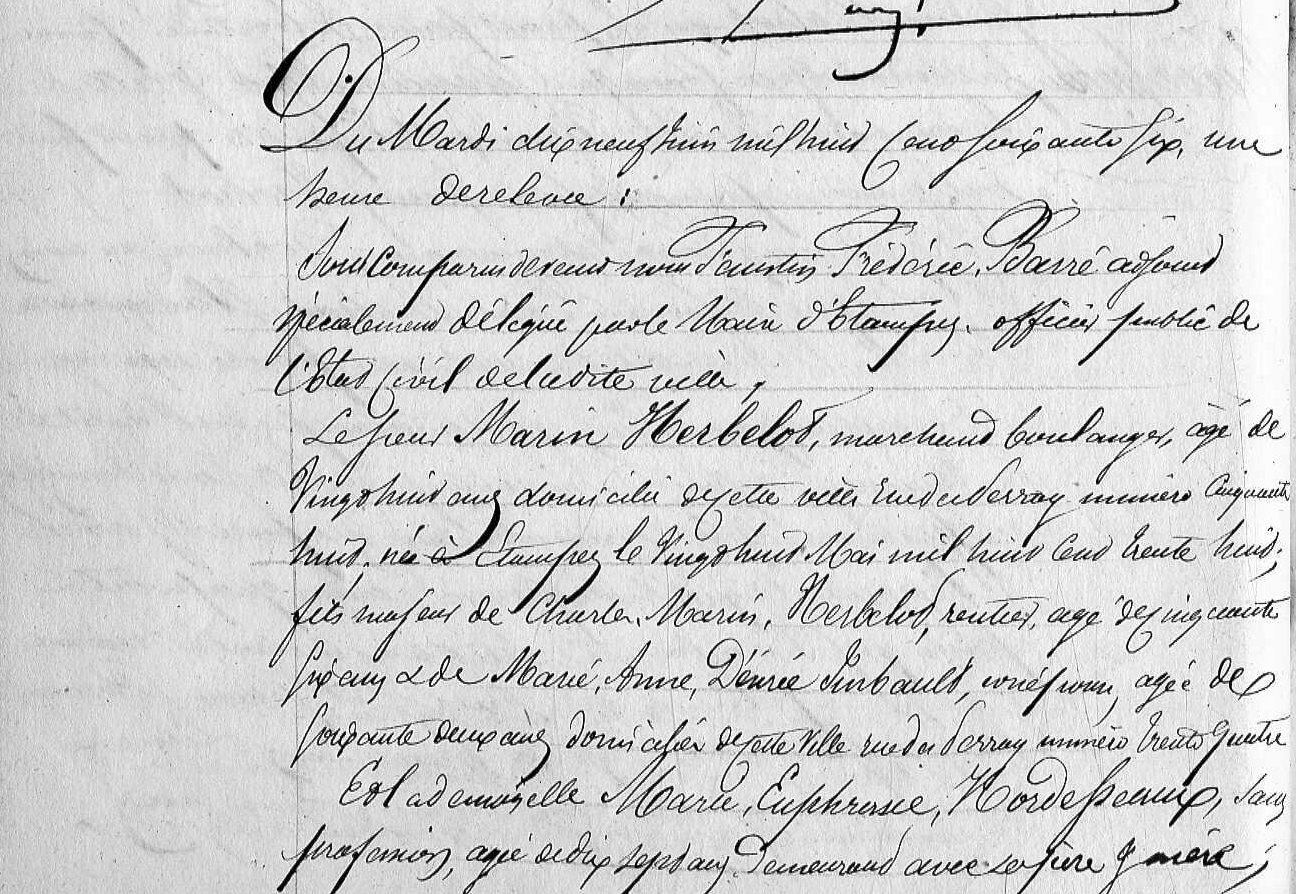 Du Mardi dix neuf Juin mil huit Cent soixante six, une
heure de relevée :
Sont comparus devant nous Faustin Frédéric Barré adjoint
spécialement délégué par le Maire d'Etampes, officier public de
l'Etat Civil de ladite ville,
Le sieur Marin Herbelot, marchand boulanger, âgé de
Vingt huit ans domicilié de cette ville rue du Perray numéro Cinquante
huit, né à Etampes le Vingt huit Mai mil huit Cent trente huit,
fils majeur de Charles, Marin, Herbelot, rentier, agé de cinquante
six ans & de Marie, Anne, Désirée Imbault, son épouse, agée de
soixante deux ans domiciliés de cette Ville rue du Perray numéro trente quatre
Et lademoizelle Marie, Euphrasie, Hordesseaux, sans
profession, agée de dix sept ans, Demeurant avec ses père & mère,